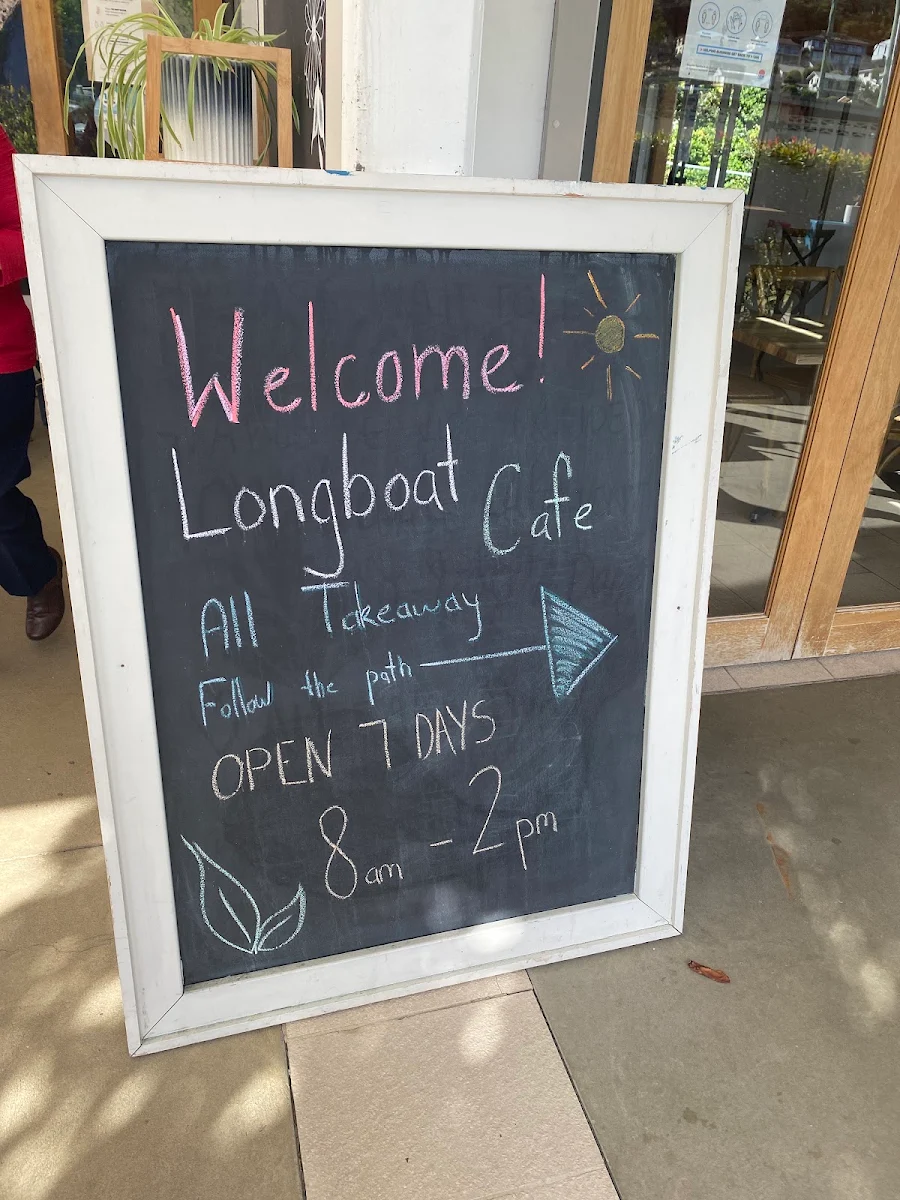 Welcome!
Longboat Cafe
All Takeaway
Follow the path
OPEN 7 DAYS
8am - 2pm